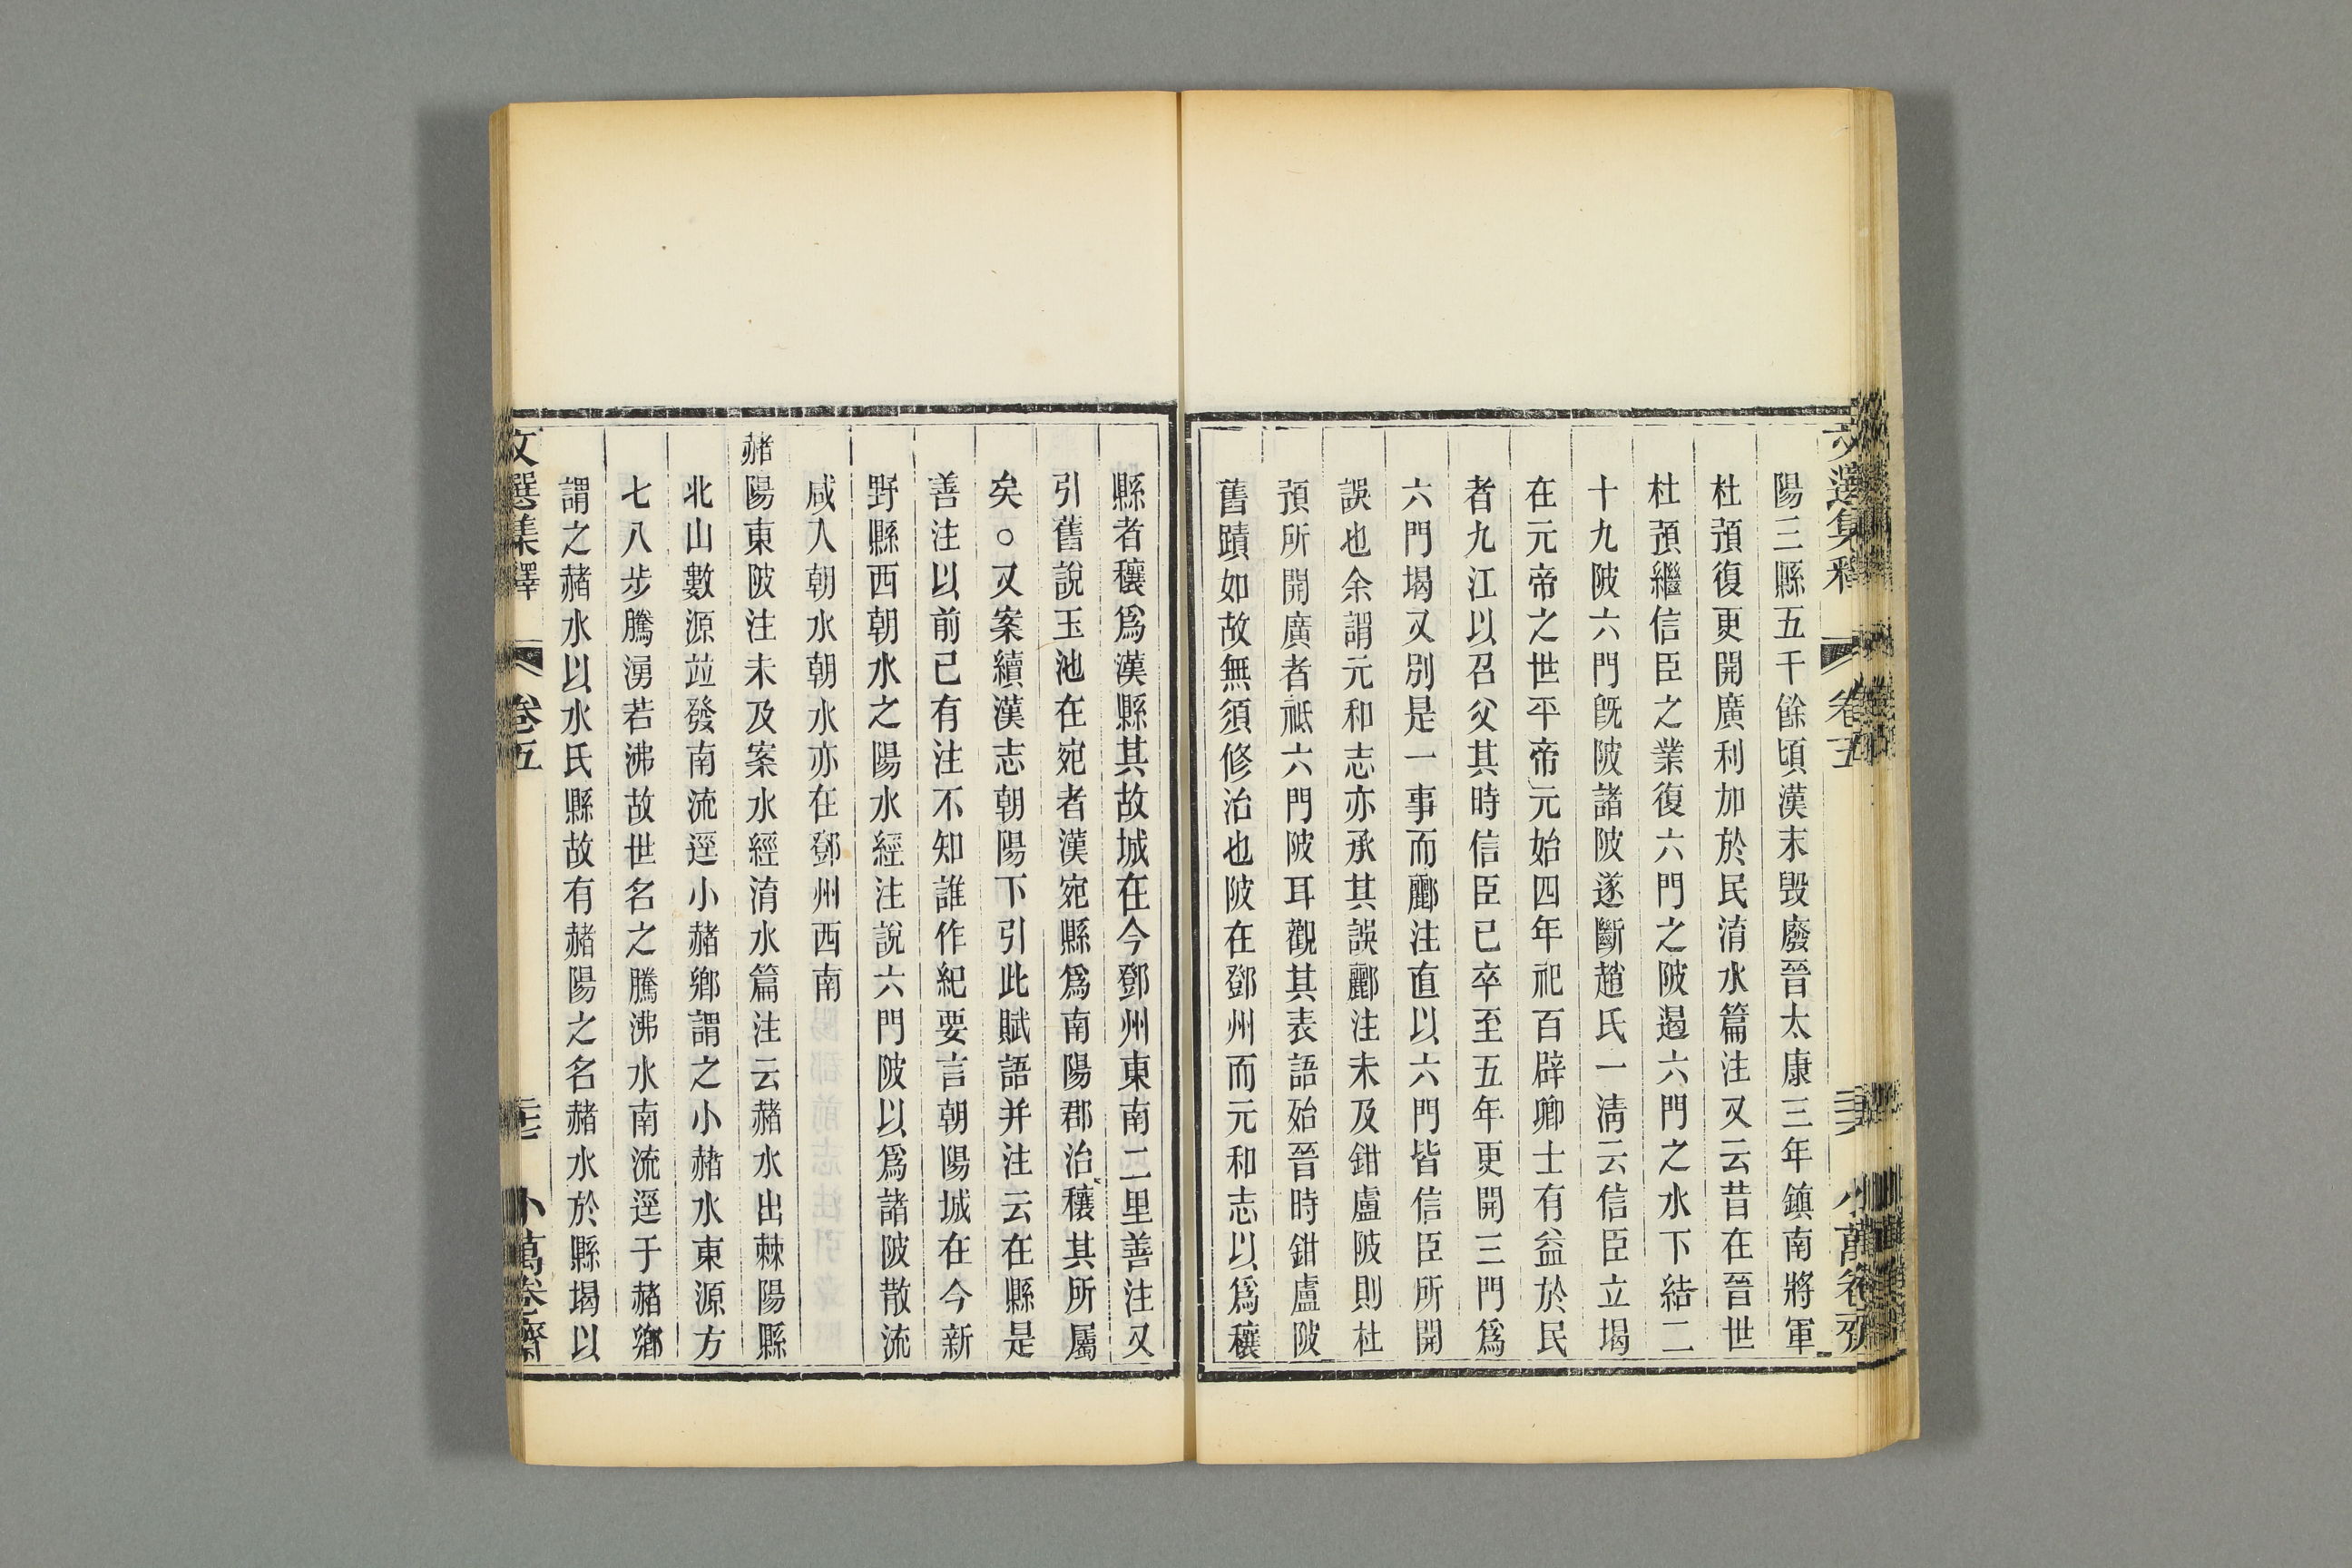 陽三縣五千餘頃漢末毁廢晉太康三年鎮南將軍
杜預復更開廣利加於民淯水篇注又云昔在晉世
杜預繼信臣之業復六門之陂遏六門之水下結二
十九陂六門旣陂諸陂遂斷趙氏一淸云信臣立堨
在元帝之世平帝元始四年祀百辟卿士有益於民
者九江以召父其時信臣已卒至五年更開三門爲
六門堨又別是一事而酈注直以六門皆信臣所開
誤也余謂元和志亦承其誤酈注未及鉗盧陂則杜
預所開廣者祗六門陂耳觀其表語殆晉時鉗盧陂
舊蹟如故無須修治也陂在鄧州而元和志以爲穰
縣者穰爲漢縣其故城在今鄧州東南二里善注又
引舊說玉池在宛者漢宛縣爲南陽郡治穰其所屬
矣○又案續漢志朝陽下引此賦語并注云在縣是
善注以前已有注不知誰作紀要言朝陽城在今新
野縣西朝水之陽水經注說六門陂以爲諸陂散流
咸入朝水朝水亦在鄧州西南
赭陽東陂注未及案水經淯水篇注云赭水出棘陽縣
北山數源竝發南流逕小赭鄉謂之小赭水東源方
七八步騰湧若沸故世名之騰沸水南流逕于赭鄉
謂之赭水以水氏縣故有赭陽之名赭水於縣堨以
文選集釋 卷五 小萬卷齋